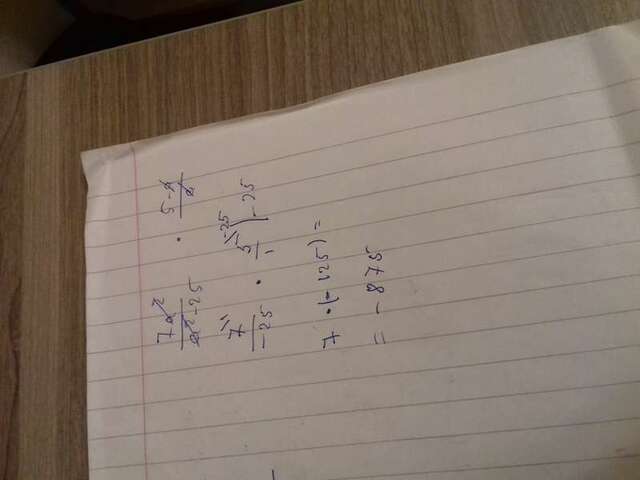 7a² / a²-25 · 5-a / a
7 / -25 · 5 / 1 | -25
7 · (-125) =
= -875